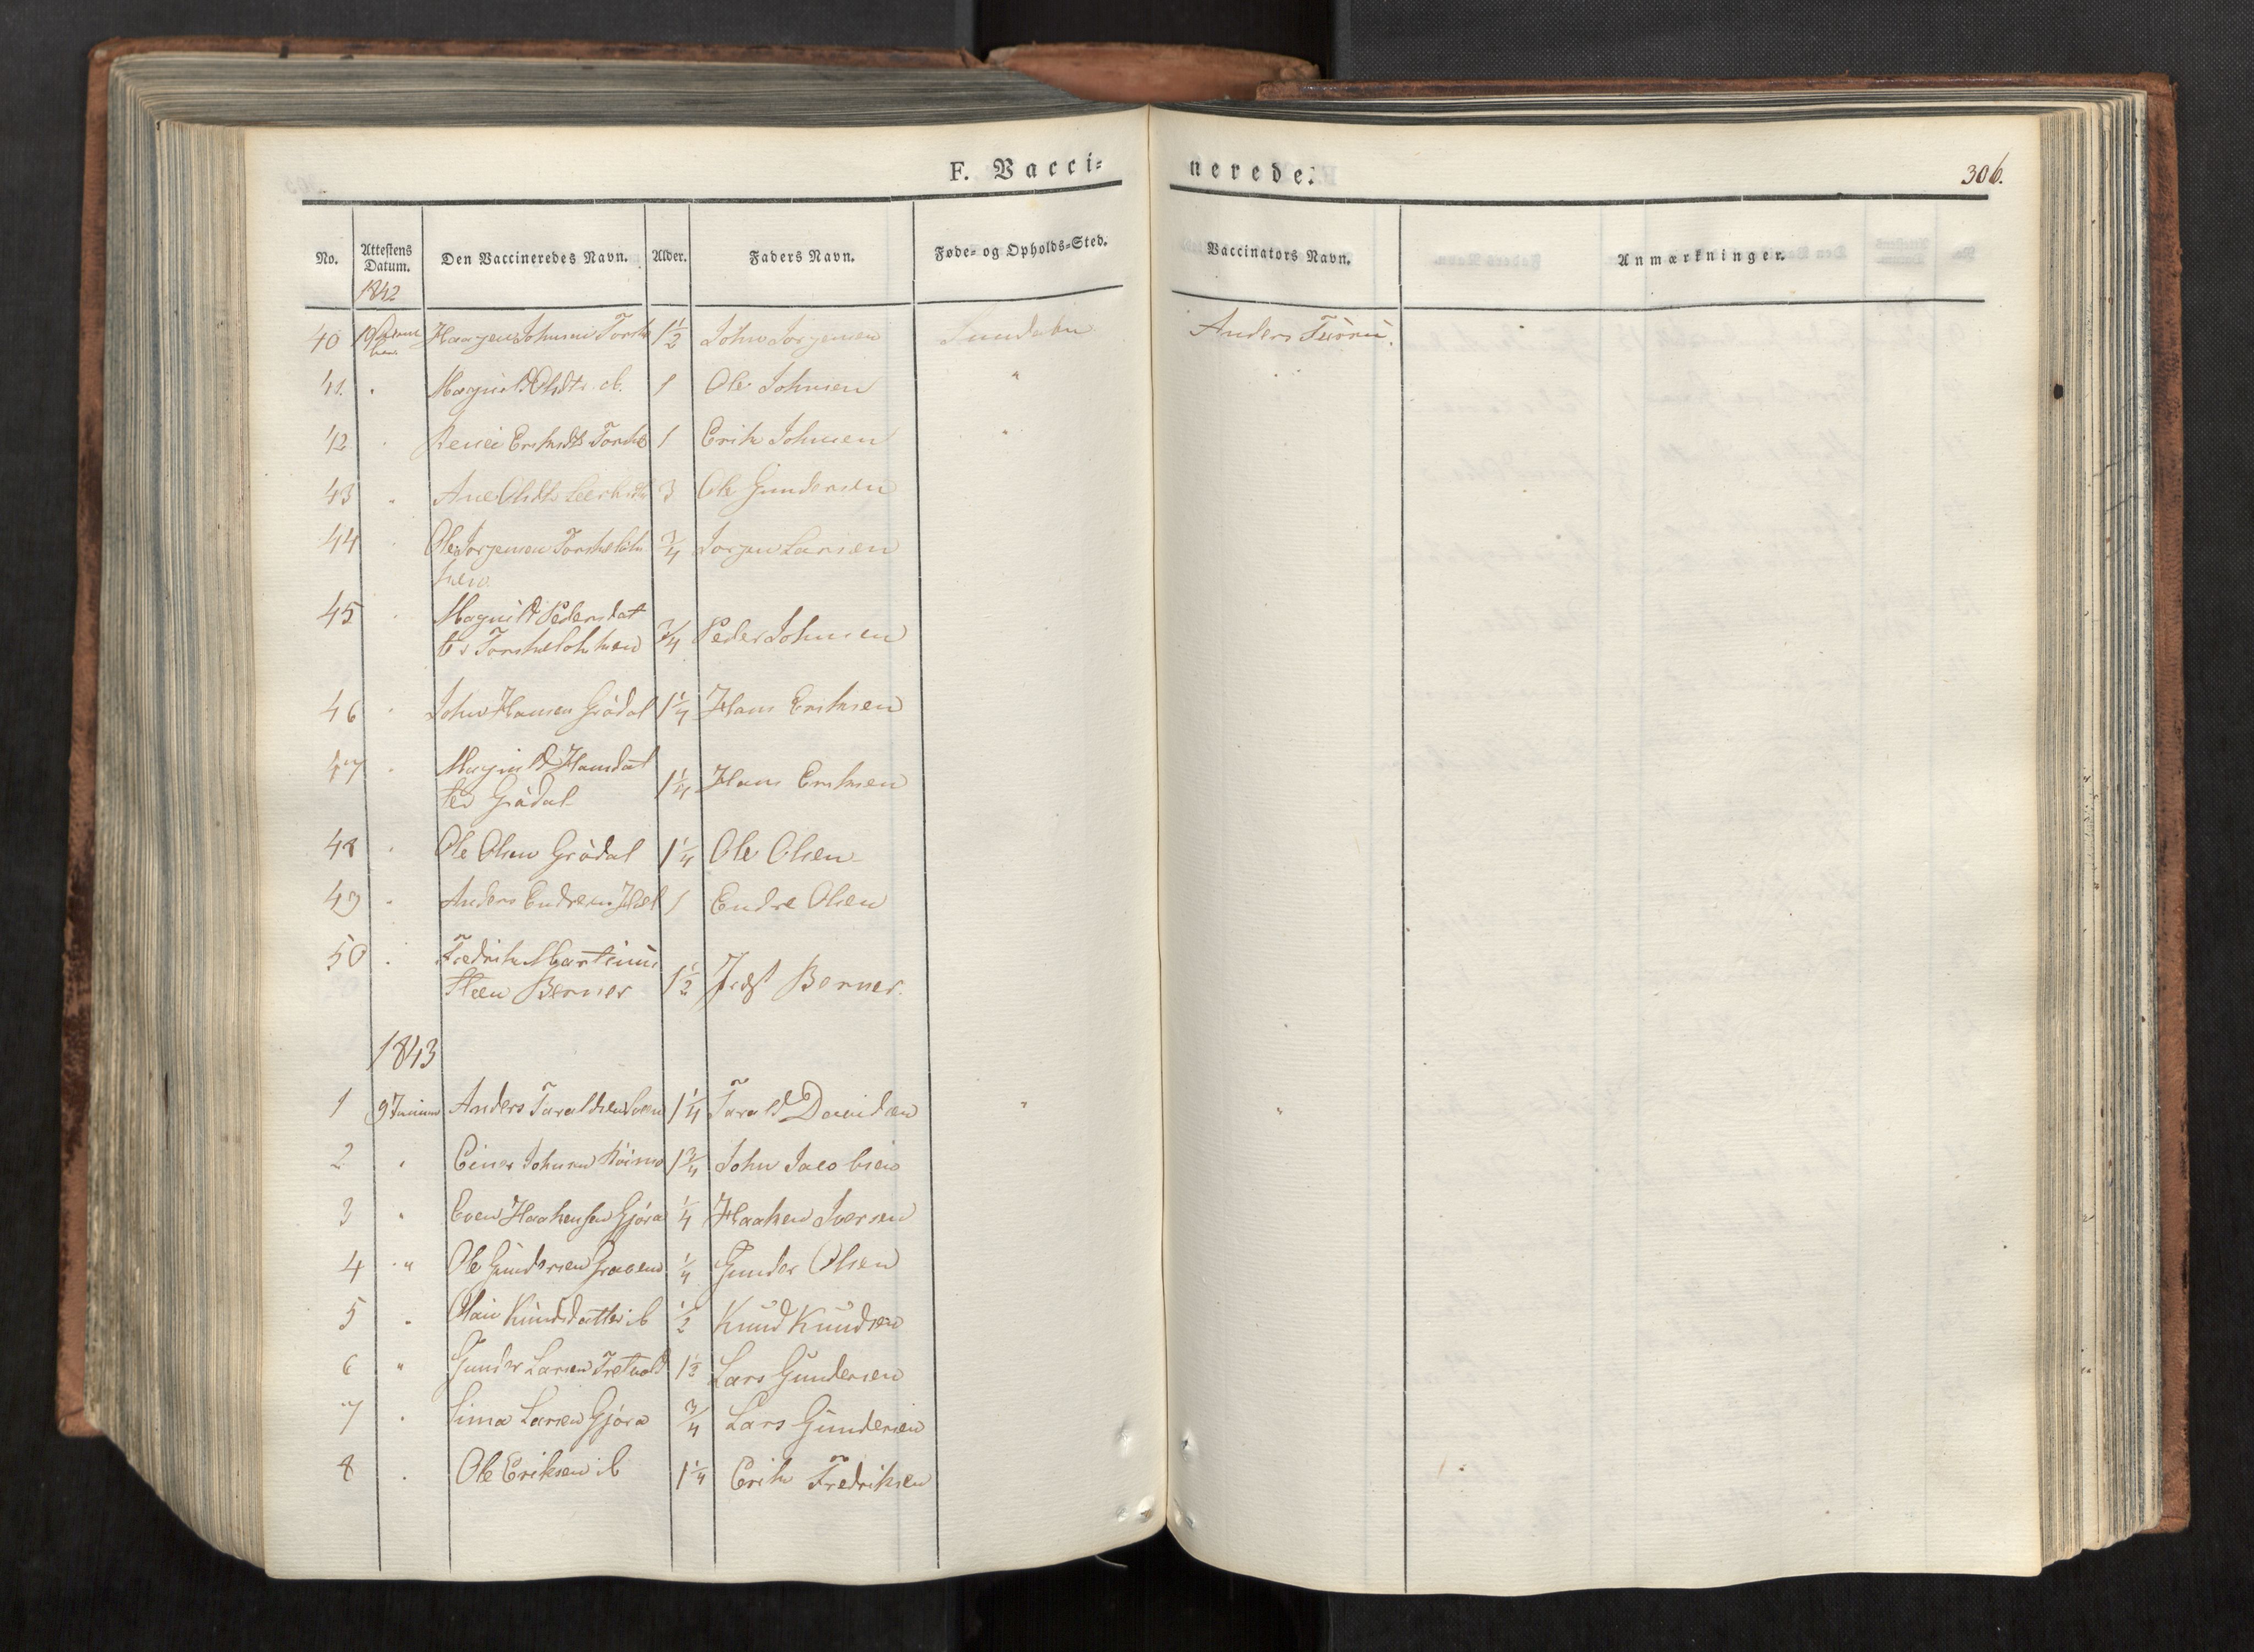 F. Vacci-
nerede.
306.
No. Attestens Datum. Den Vaccineredes Navn. Alder. Faders Navn. Føde- og Opholds-Sted. Vaccinators Navn. Anmærkninger.
1842
40 19 Haagen Johnsen 1½ John Jørgensen Sundalen Anders
41. Magnild Olsdtr. ib. 1 Ole Johnsen "
42 Eriksdtr 1 Erik Johnsen "
43 " Ane Olsdtr 3 Ole Gundersen
44 Ole Jørgensen ¾ Jørgen Larsen
45 Magnild Pedersdat
ter ¾ Peder Johnsen
46 John Hansen Grødal 1¼ Hans Eriksen
47 Magnild Hansdat
ter Grødal 1¼ Hans Eriksen
48 Ole Olsen Grødal 1¼ Ole Olsen
49 " Anders Endresen 1 Endre Olsen
50 Fredrik Martinus
Steen Berner 1½ Berner.
1843
1 9 Junius Anders Taraldsen 1¼ Tarald Davidsen " "
2 " Einer Johnsen 1¾ John Jacobsen
3 " Even Haakensen Gjøra ¼ Haaken Iversen
4 " Ole Gundersen ¼ Gunder Olsen
5 " Knudsdatter ib ½ Knud Knudsen
6 " Gunder Larsen 1½ Lars Gundersen
7 " Larsen Gjøra ¾ Lars Gundersen
8 Ole Eriksen ib 1¼ Erik Fredriksen